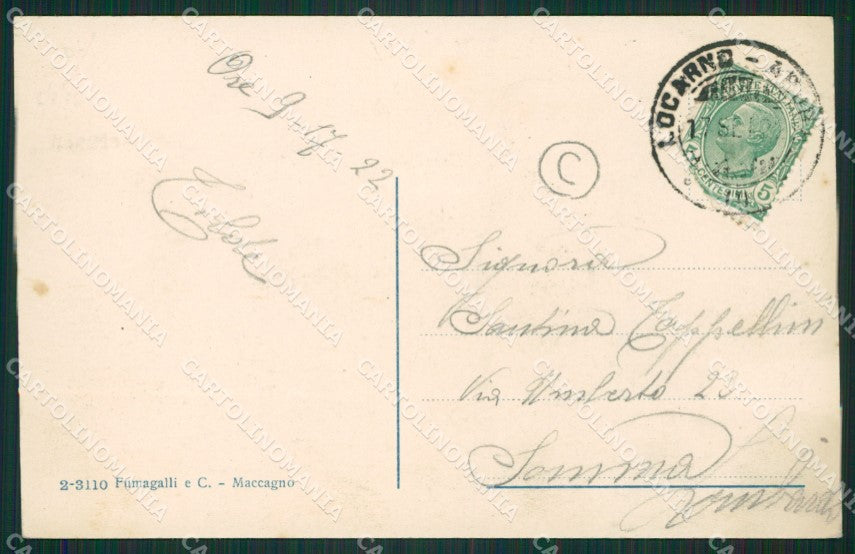 Ore 9-17-22
LOCARNO - AR
SET
CENTESIMI 5
C
Signora
Santina Cappellini
Via Umberto 23
Somma
Lombardo
2-3110 Fumagalli e C. - Maccagno
CARTOLINOMANIA